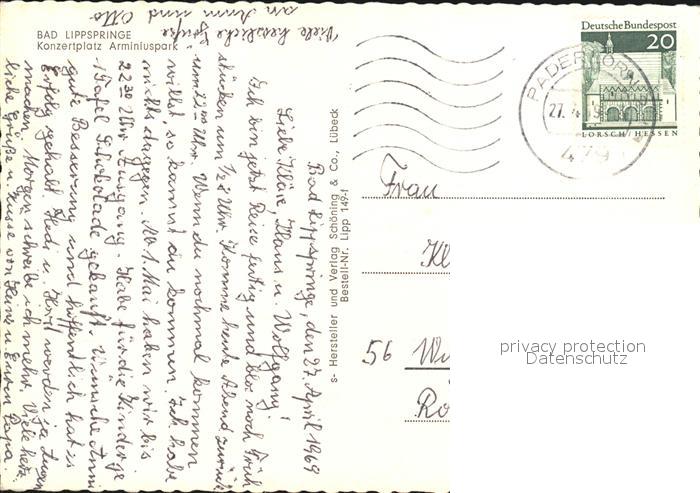 BAD LIPPSPRINGE
Konzertplatz Arminiuspark
Bad Lippspringe, den 27. April 1969
Liebe Kläre, Klaus u. Wolfgang!
Ich bin jetzt Reise fertig und blos noch Früh
stücken um ½ 8 Uhr. Komme heute Abend zurück
um 22 00 Uhr. Wenn du nochmal kommen
willst so kannst du kommen. Ich habe
nichts dagegen. Ab 1. Mai haben wir bis
22 30 Uhr Ausgang. Habe für die Kinder je
1 Tafel Schokolade gekauft. Wünsche Anni
gute Besserung und hoffentlich hat es
Erfolg gehabt. u. werden ja Augen
machen. Morgen schreibe ich mehr. Viele herz-
liche Grüße u. Küsse von Heinz u. Euren Papa.
Viele herzliche Grüße
an Anni und Otto
s- Hersteller und Verlag Schöning & Co., Lübeck
Bestell-Nr. Lipp 149-f
Deutsche Bundespost
20
LORSCH/HESSEN
PADERBORN
479
Frau
Kl
56 Wu
Ro
privacy protection
Datenschutz